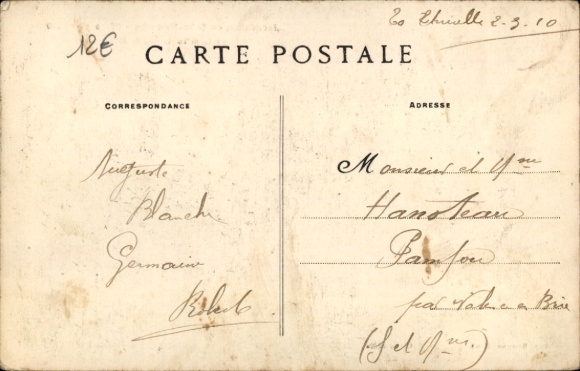 2-3-10
12€
CARTE POSTALE
CORRESPONDANCE
ADRESSE
Auguste
Blanche
Germaine
Robert
Monsieur et Mme
Hanoteau
Pamfou
par Valence en Brie
(S et Mne)